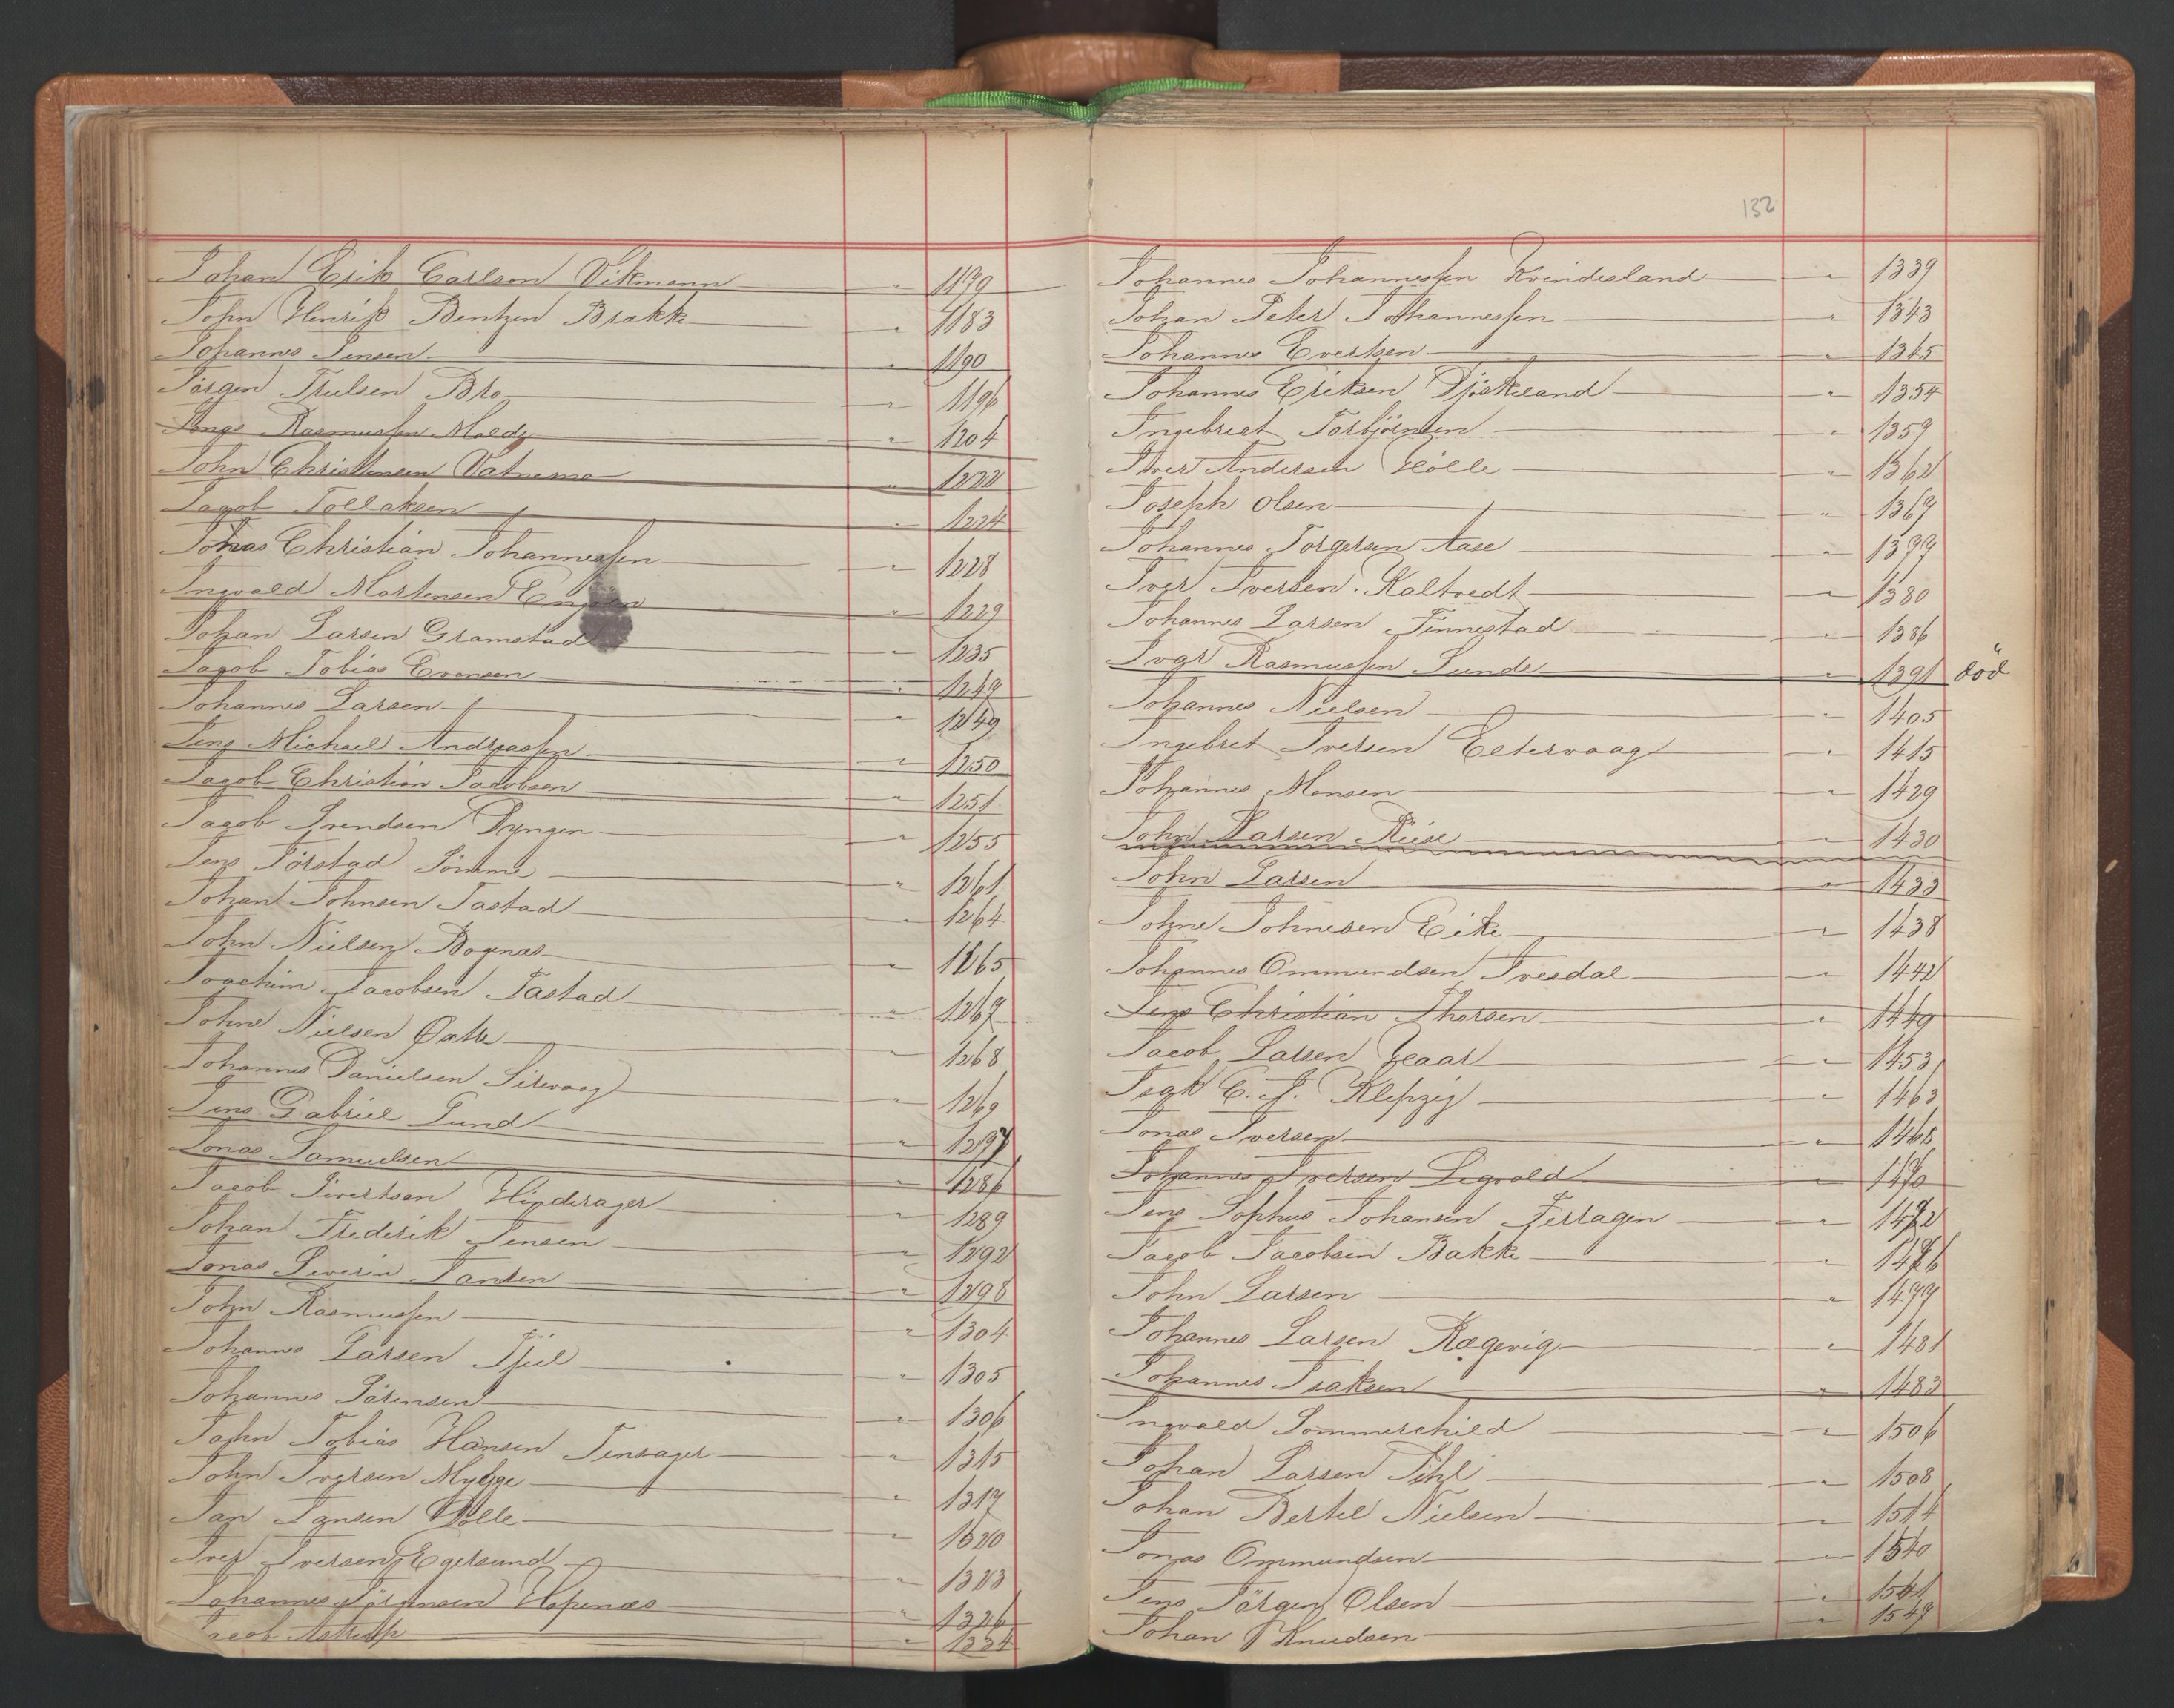 Johan Erik Carlson Vikmann " 1179
John Henrik Bentzen Brække " 1183
Johannes Jensen " 1190
Jørgen Truelsen Bro " 1196
Jonas Rasmussen Molde " 1204
John Christensen Vatnemo " 1222
Jacob Tollaksen " 1224
Jonas Christian Johannessen " 1228
Ingvald Mortensen Engøen " 1229
Johan Larsen Gramstad " 1235
Jacob Tobias Evensen " 1247
Johannes Larsen " 1249
Jens Michael Andreassen " 1250
Jacob Christian Jacobsen " 1251
Jacob Svendsen Dyngen " 1255
Jens Tørstad Sømme " 1261
Johan Johnsen Tastad " 1264
John Nielsen Bognæs " 1265
Joachim Jacobsen Tastad " 1267
Johne Nielsen " 1268
Johannes Danielsen Sirevaag " 1269
Jens Gabriel Lund " 1277
Jonas Samuelsen " 1286
Jacob Sivertsen Hinderager " 1289
Johan Frederik Jensen " 1292
Jonas Severin Jansen " 1298
John Rasmussen " 1304
Johannes Larsen Tjul " 1305
Johannes Sørensen " 1306
John Tobias Hansen Tensager " 1315
John Iversen Mykje " 1317
Jan Jansen Dolle " 1620
Iver Iversen Egersund " 1323
Johannes Jørgensen Hopenæs " 1326
Jacob Astrup " 1334
132
Johannes Johannessen Kvindesland " 1339
Johan Peter Johannessen " 1343
Johannes Evertsen " 1345
Johannes Eriksen Tjøskeland " 1354
Ingebret Torbjørnsen " 1359
Iver Andersen Hølle " 1362
Joseph Olsen " 1367
Johannes Torgersen Aase " 1377
Iver Iversen Kaltvedt " 1380
Johannes Larsen Finnestad " 1386
Ivar Rasmussen Sunde " 1391 död
Johannes Nielsen " 1405
Ingebret Iversen Eltervaag " 1415
Johannes Monsen " 1429
John Larsen Riise " 1430
John Larsen " 1433
Johne Johnesen Eike " 1438
Johannes Ommundsen Ivesdal " 1442
Jens Christian Thorsen " 1449
Jacob Larsen Haar " 1453
Isak C. J. Klepzig " 1463
Jonas Iversen " 1468
Johannes Iversen Ligvold " 1470
Jens Sophus Johansen Fertagen " 1472
Jacob Jacobsen Bakke " 1476
John Larsen " 1477
Johannes Larsen Rægevig " 1481
Johannes Isaksen " 1483
Ingvald Sommerschild " 1506
Johan Larsen Pihl " 1508
Johan Bertel Nielsen " 1514
Jonas Ommundsen " 1540
Jens Jörgen Olsen " 1541
Johan Knudsen " 1547